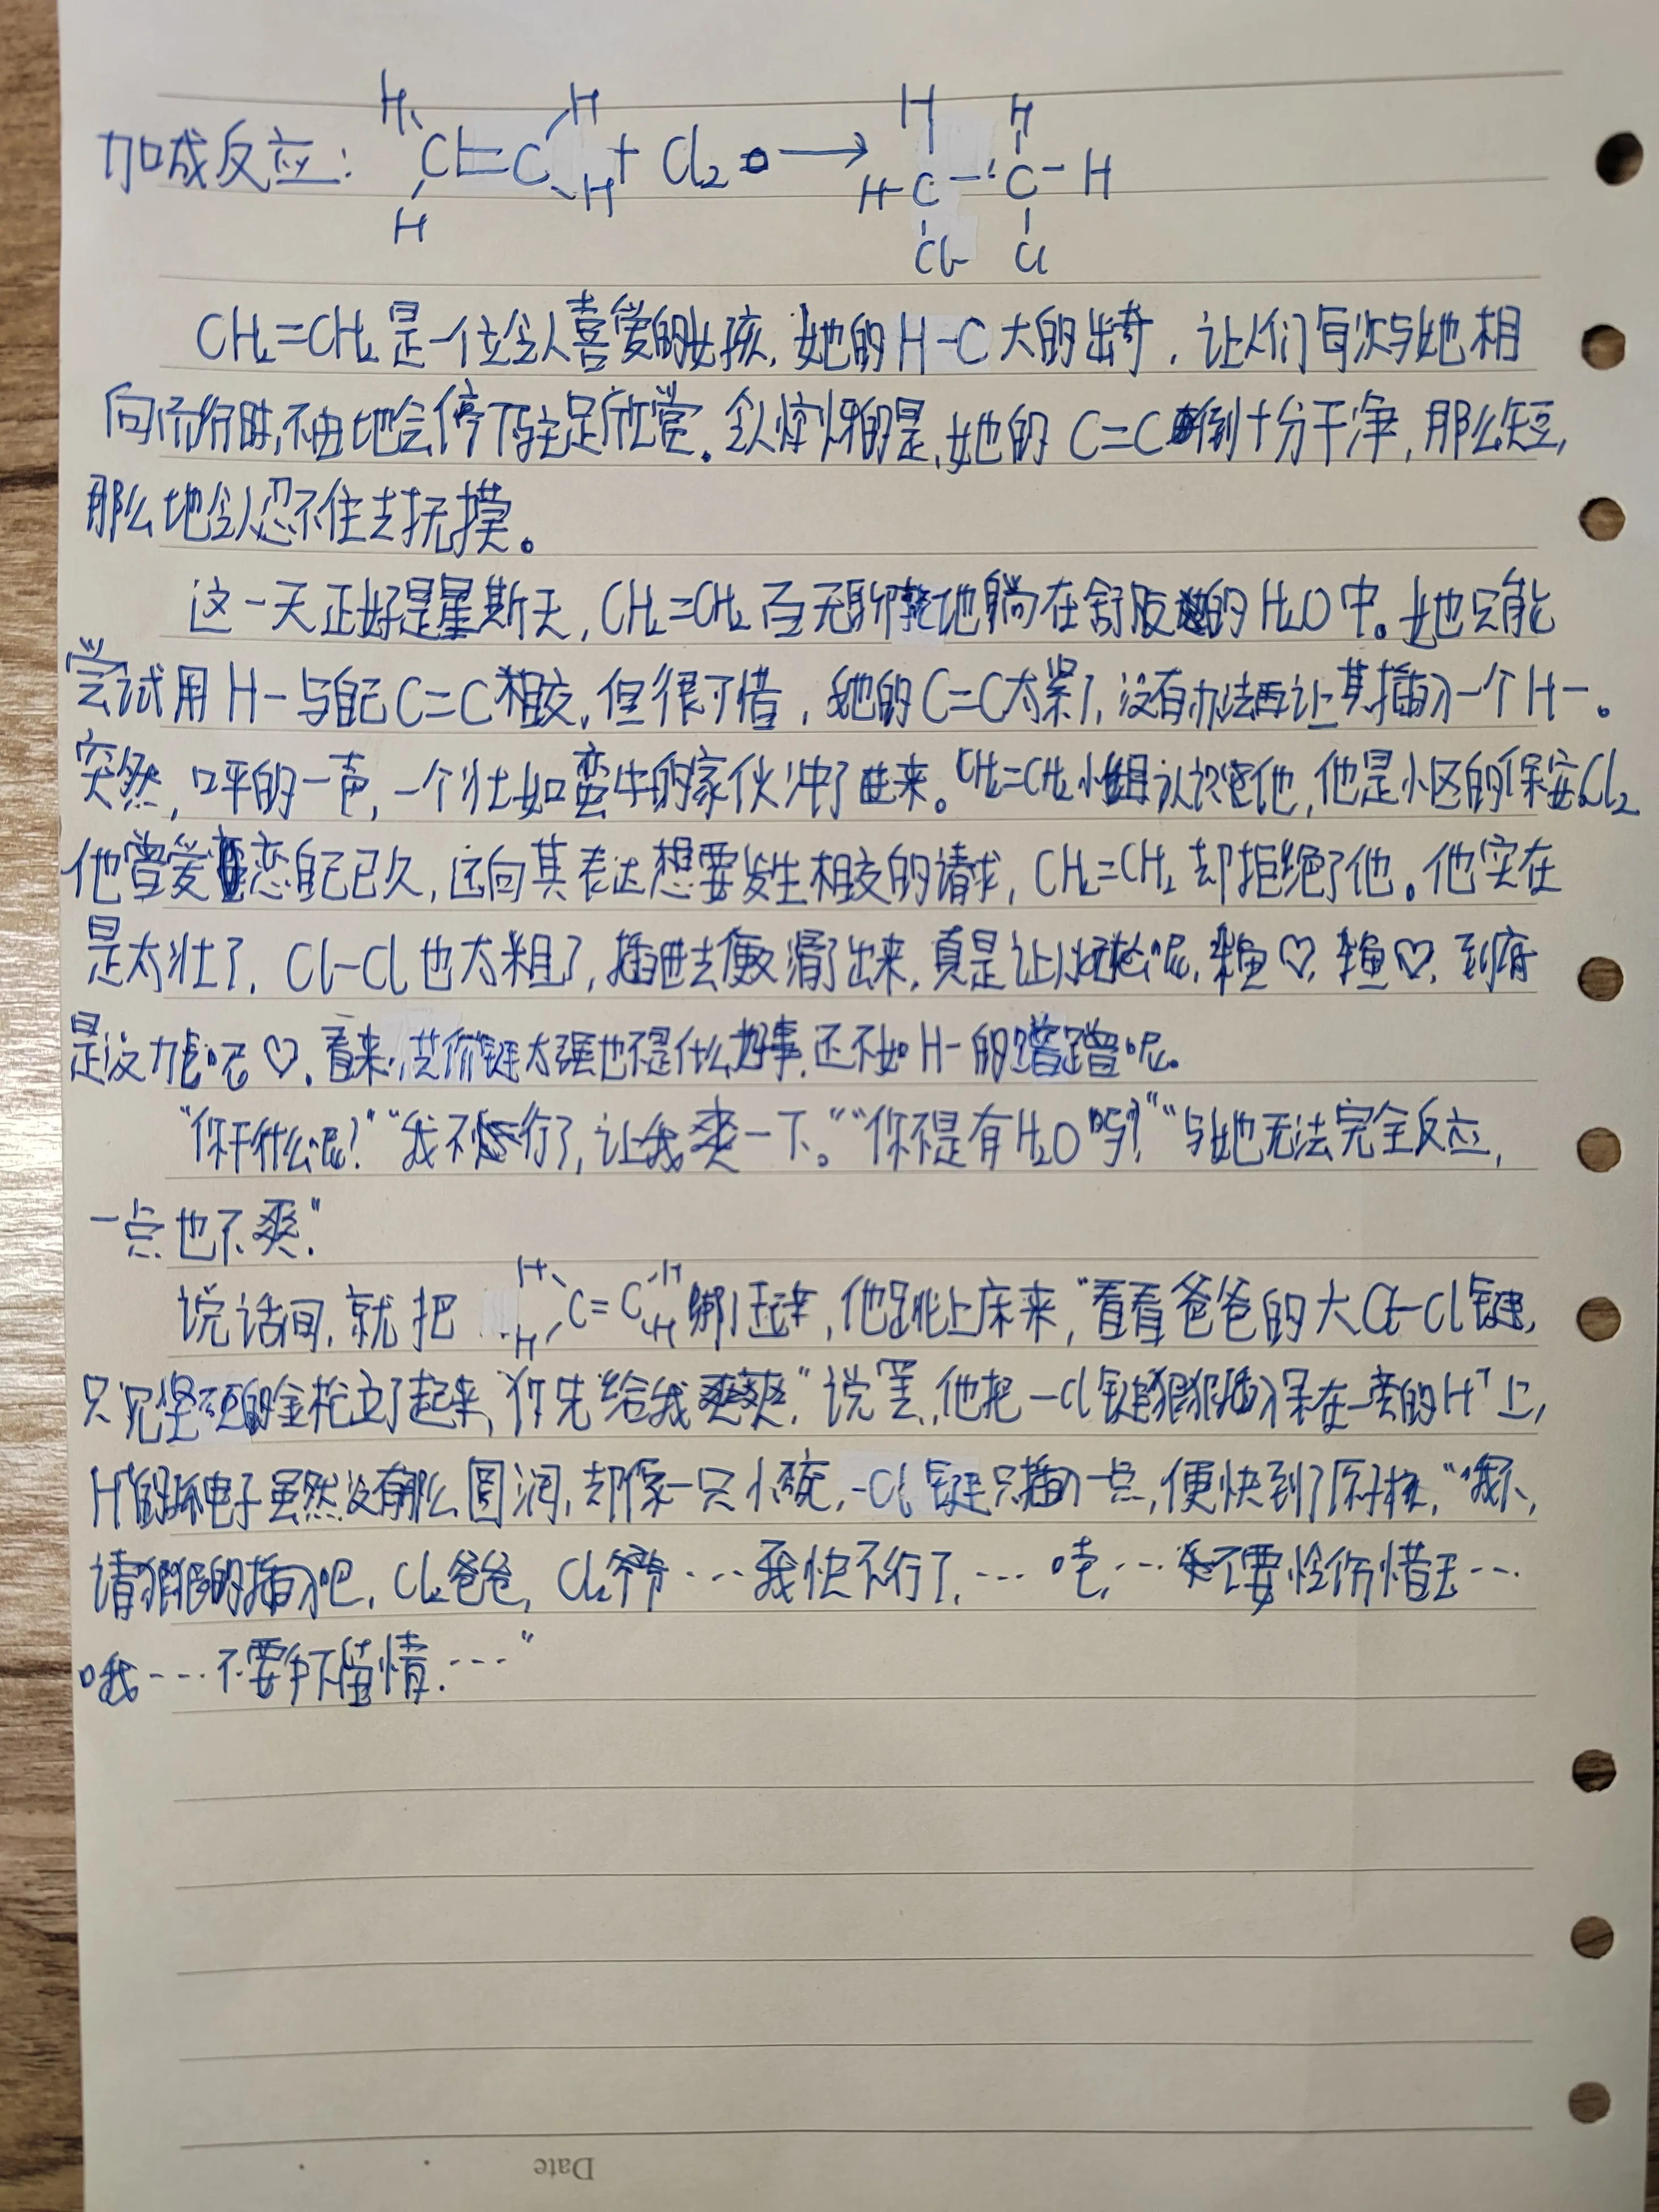 加成反应: H H C=C H H + Cl₂ → H H H-C-C-H Cl Cl
CH₂=CH₂是一位令人喜爱的女孩,她的H-C大的出奇,让人们每次与她相
向而行时,不由地会停下驻足欣赏。令人惊讶的是,她的C=C倒十分干净,那么短,
那么地令人忍不住去抚摸。
这一天正好是星斯天,CH₂=CH₂百无聊地躺在舒服的H₂O中。她只能
尝试用H-与自己C=C相交,但很可惜,她的C=C太紧了,没有办法再让其插入一个H-。
突然,呯的一声,一个壮如蛮牛的家伙冲了进来。CH₂=CH₂小姐认识他,他是小区的保安Cl₂
他曾爱恋自己已久,还向其表达想要发生相交的请求,CH₂=CH₂却拒绝了他。他实在
是太壮了,Cl-Cl也太粗了,插进去便又滑了出来,真是让人呢,♡,♡,到底
是没力呢♡。看来,共价键太强也不是什么好事,还不如H-的蹭蹭呢。
“你干什么呢?”“我不行了,让我爽一下。”“你不是有H₂O吗?”“与她无法完全反应,
一点也不爽.”
说话间,就把 H H C=C H H 绑了起来,他跳上床来,“看看爸爸的大Cl-Cl键,
只见坚硬的金枪立了起来,“你先给我爽爽,”说罢,他把-Cl键狠狠插入呆在一旁的H⁺上,
H⁺的电子虽然没有那么圆润,却像一只小,-Cl键只插入一点,便快到了原子核,“哦,
请狠狠的插入吧,Cl₂爸爸,Cl₂爷爷……我快不行了,…………不要怜惜……
哦……不要手下留情.……”
Date